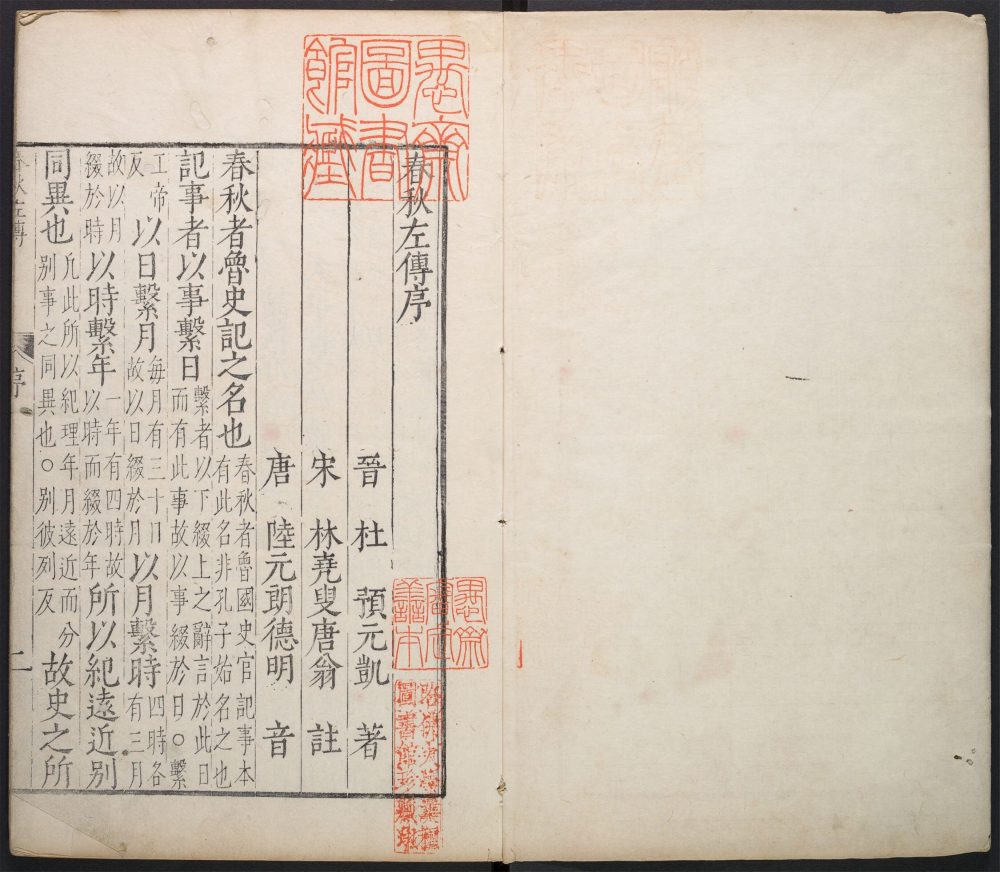 愚齋圖書館藏
春秋左傳序
晉 杜 預元凱 著
宋 林堯叟唐翁 註
唐 陸元朗德明 音
春秋者魯史記之名也 春秋者魯國史官記事本有此名非孔子始名之也
記事者以事繫日 繫者以下綴上之辭言於此日而有此事故以事綴於日○繫
工帝反 以日繫月 每月有三十日故以日綴於月 以月繫時 四時各有三月
故以月綴於時 以時繫年 一年有四時故以時而綴於年 所以紀遠近別
同異也 凡此所以紀理年月遠近而分別事之同異也○別彼列反 故史之所
春秋左傳 序
愚齋審定善本
哈佛大學漢和圖書館珍藏印